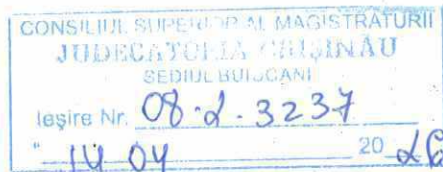 CONSILIUL SUPERIOR AL MAGISTRATURII
JUDECATORIA CHIŞINĂU
SEDIUL BUIUCANI
Ieşire Nr. 08-2-3237
" 14 04 20 26